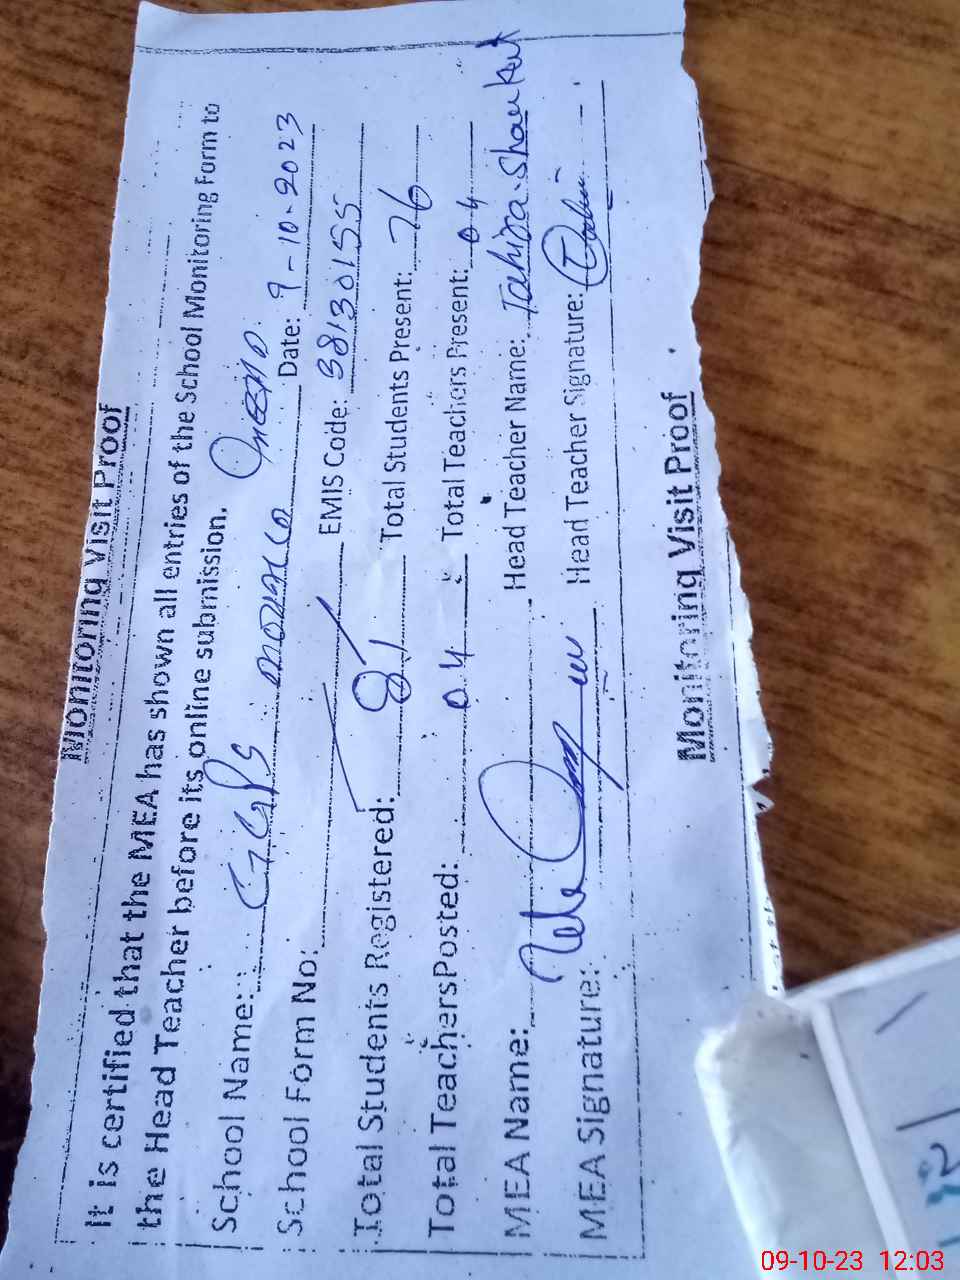 Monitoring Visit Proof
It is certified that the MEA has shown all entries of the School Monitoring Form to
the Head Teacher before its online submission.
School Name: GGPS Date: 9-10-2023
School Form No: EMIS Code: 38130155
Total Students Registered: 81 Total Students Present: 76
Total Teachers Posted: 04 Total Teachers Present: 04
MEA Name: Head Teacher Name: Tahira Shaukat
MEA Signature: Head Teacher Signature:
Monitoring Visit Proof
09-10-23 12:03